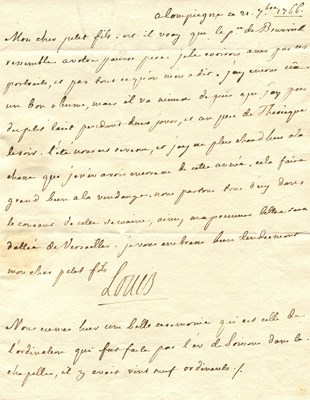 a Compiegne ce 21. 7bre 1766.
Mon cher petit fils. est il vray que le p. de
ressemble a votre pauvre pere. je le croirois assez par ses
portraits, et par tout ce qu'on m'en a dit. j'ay encore été
un bon rhume, mais il va mieux depuis que j'ay pris
du petit lait pendant deux jours, et un peu de Theriaque
le soir. l'été nous est revenu, et j'ay eu plus chaud hier a la
chasse que je n'avois encore eu de cette année. cela faira
grand bien a la vendange. nous partons tous d'icy dans
le courant de cette semaine, ainsy ma premiere lettre sera
dattée de Versailles. je vous embrasse bien tendrement
mon cher petit fils
Louis
Nous eumes hier une belle ceremonie qui est celle de
l'ordination qui fut faite par l'ev. de Soissons dans la
chapelle, il y avoit vint neuf ordinents ./.